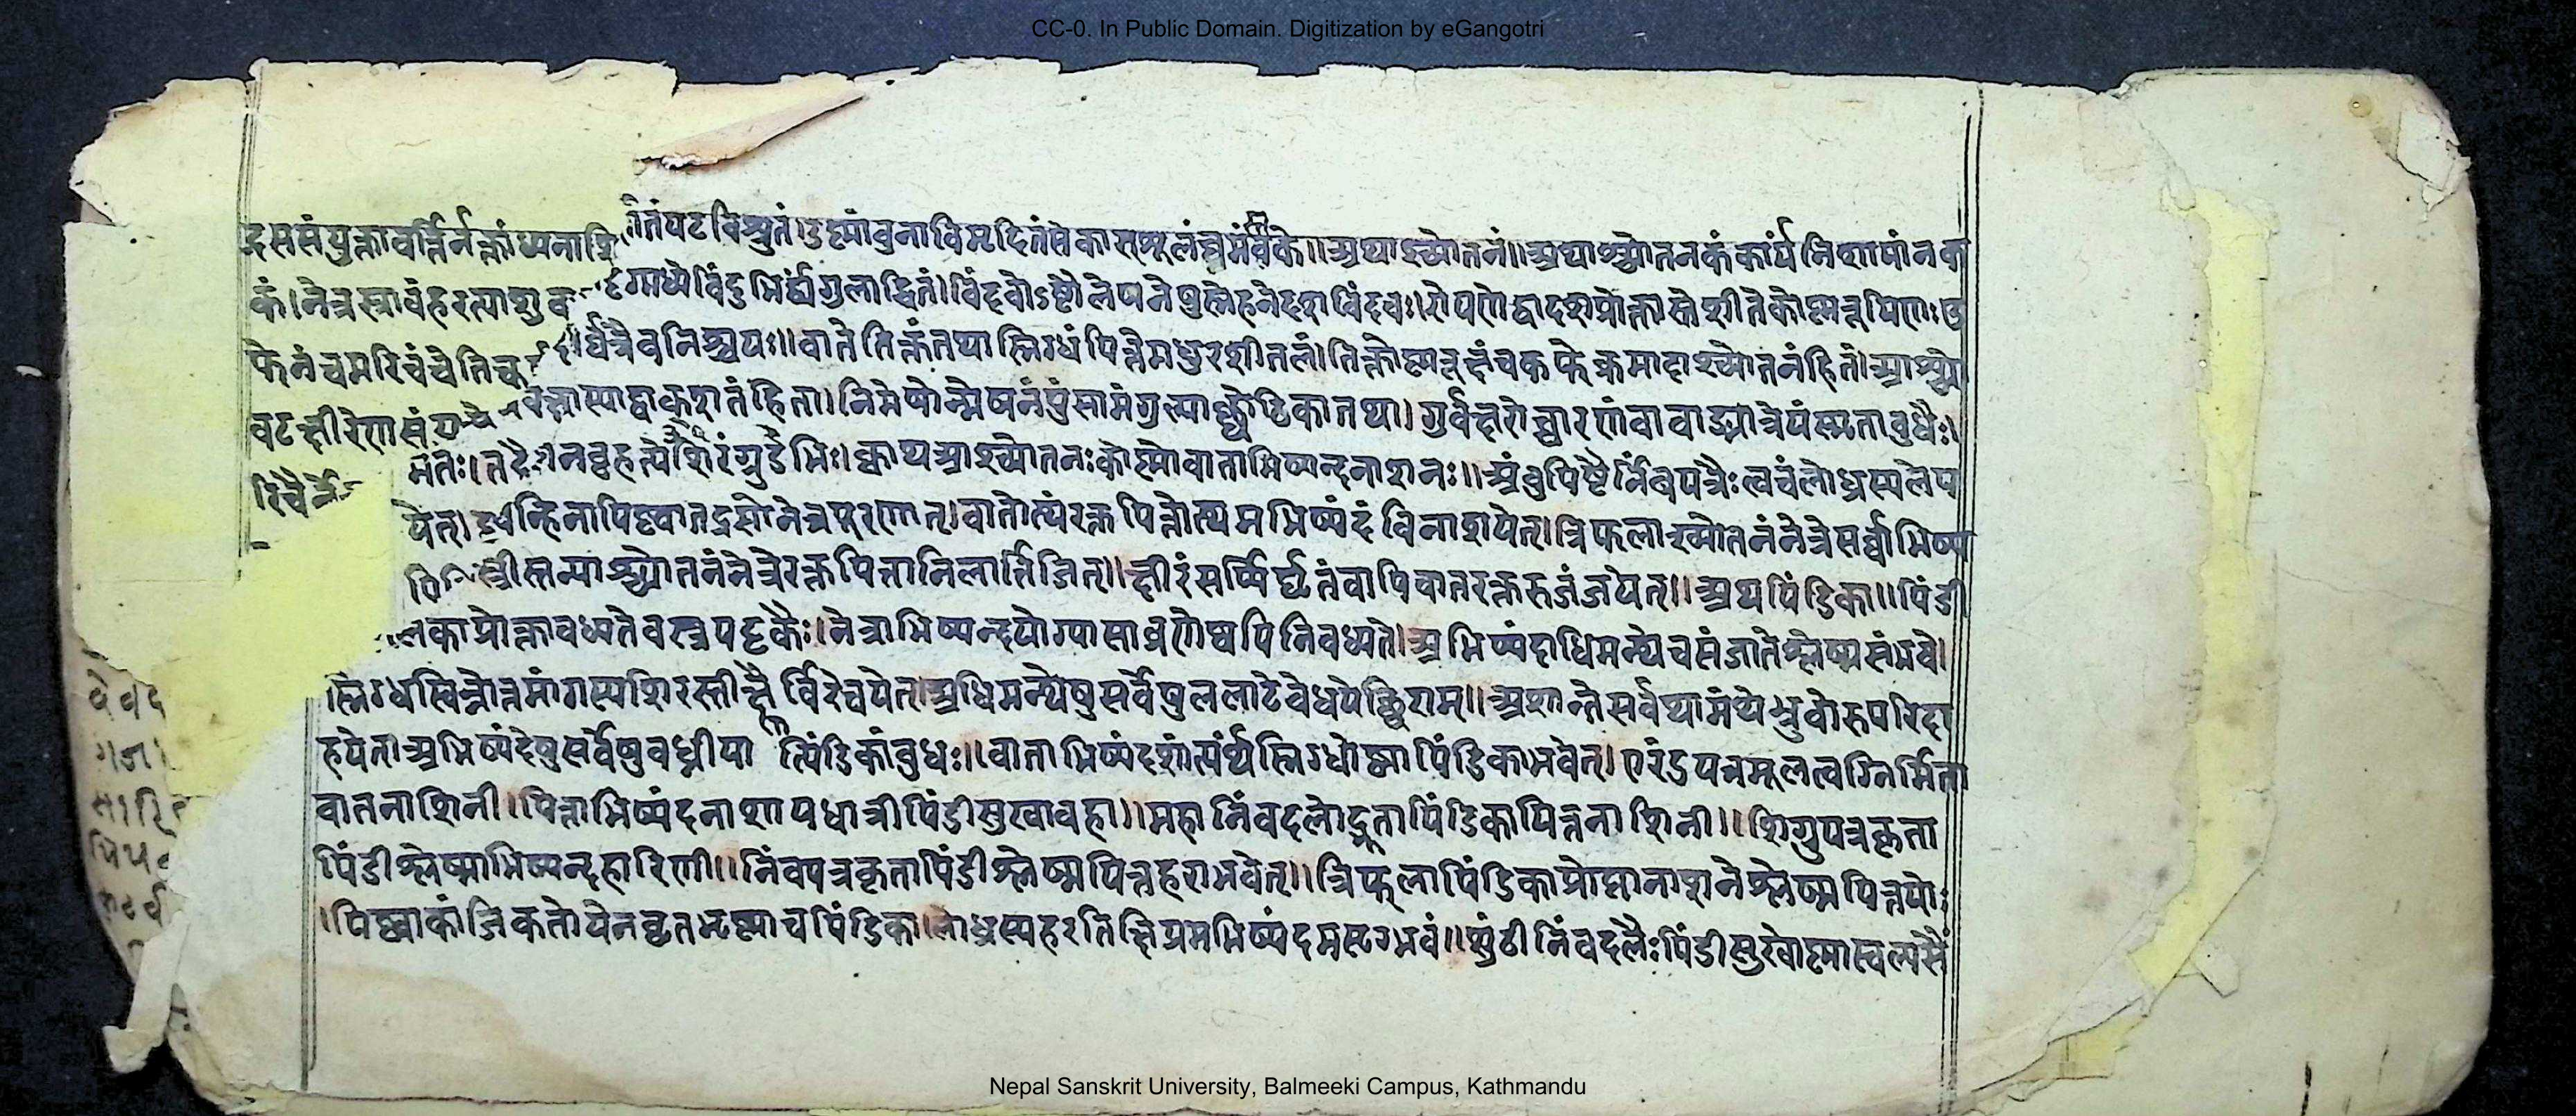 CC-0. In Public Domain. Digitization by eGangotri
द्रससंयुक्तावर्त्तिर्नक्तांध्यनाशि तंपटविश्रुतं। उष्मांबुनाविमृदितंसेकासरमूलंघ्नमंबिके॥ अथाश्च्योतनं॥ अथाश्च्योतनकंकार्यंनिशायांनक
कं। नेत्रस्रावंहरत्याशु दृग्मध्येविंदुभिर्द्व्यंगुलाद्धितं। विंदवोऽष्टौलेषनेषुस्नेहनेदशविंदवः। रोपणेद्वादशप्रोक्तास्तेशीतेकोष्मरूपिणः। उ
फेनंचमरिचंचेति र्धंत्रैवनिश्चयः॥ वातेतिक्तंतथास्निग्धंपित्तेमधुरशीतलं। तिक्तोष्मरूक्षंचकफेक्रमादाश्च्योतनंहितं। आश्च्यो
वटक्षीरेणसं वाक्शतंहिता। निमेषोन्मेषनंपुंसामंगुल्याच्छोटिकातथा। गुर्वक्षरोच्चारणंवावाङ्मात्रेयंस्मृताबुधैः॥
रिचै मतः। बृहत्येशिरंगुडैभिः। क्वाथआश्च्योतनःकोष्मोवाताभिष्यन्दनाशनः॥ अंबुपिष्टैर्निंबपत्रैःत्वचंलोध्रस्यलेप
येत्। वन्हिनापिष्ट्वातद्रसोनेत्रपूरणात्। वातोत्थंरक्तपित्तोत्थमभिष्यंदंविनाशयेत्। त्रिफलाश्च्योतनंनेत्रेसर्वाभिष्य
स्त्रीस्तन्याश्च्योतनंनेत्रेरक्तपित्तानिलार्त्तिजित्॥ क्षीरंसर्पिर्घृतंवापिवातरक्तरुजंजयेत्॥ अथपिंडिका॥ पिंडी
लकाप्रोक्तावध्यतेवस्त्रपट्टकैः। नेत्राभिष्यन्दयोग्यासाव्रणेष्वपिनिवध्यते। अभिष्यंदाधिमन्थेचसंजातेश्लेष्मसंभवे।
स्निग्धस्विन्नोत्तमांगस्यशिरस्तीक्ष्णैर्विरेचयेत्। अधिमन्थेषुसर्वेषुललाटेवेधयेच्छिराम्॥ अशान्तेसर्वथामंथेभ्रुवोरुपरिदा
हयेत्। अभिष्यंदेषुसर्वेषुवध्नीयात्पिंडिकांबुधः॥ वाताभिष्यंदशांत्यर्थंस्निग्धोष्मापिंडिकाभवेत्। एरंडपत्रमूलत्वग्निर्मिता
वातनाशिनी। पित्ताभिष्यंदनाशायधात्रीपिंडीसुखावहा॥ महानिंवदलोद्भूतापिंडिकापित्तनाशिनी॥ शिग्रुपत्रकृता
पिंडीश्लेष्माभिष्यन्दहारिणी॥ निंवपत्रकृतापिंडीश्लेष्मपित्तहराभवेत्॥ त्रिफलापिंडिकाप्रोक्तानाशनेश्लेष्मपित्तयोः
। पिष्ट्वाकांजिकतोयेनघृतभृष्टाचपिंडिका। लोध्रस्यहरतिक्षिप्रमभिष्यंदमसृग्भवं॥ शुंठीनिंवदलैःपिंडीसुखोष्मास्वल्पसैं
Nepal Sanskrit University, Balmeeki Campus, Kathmandu